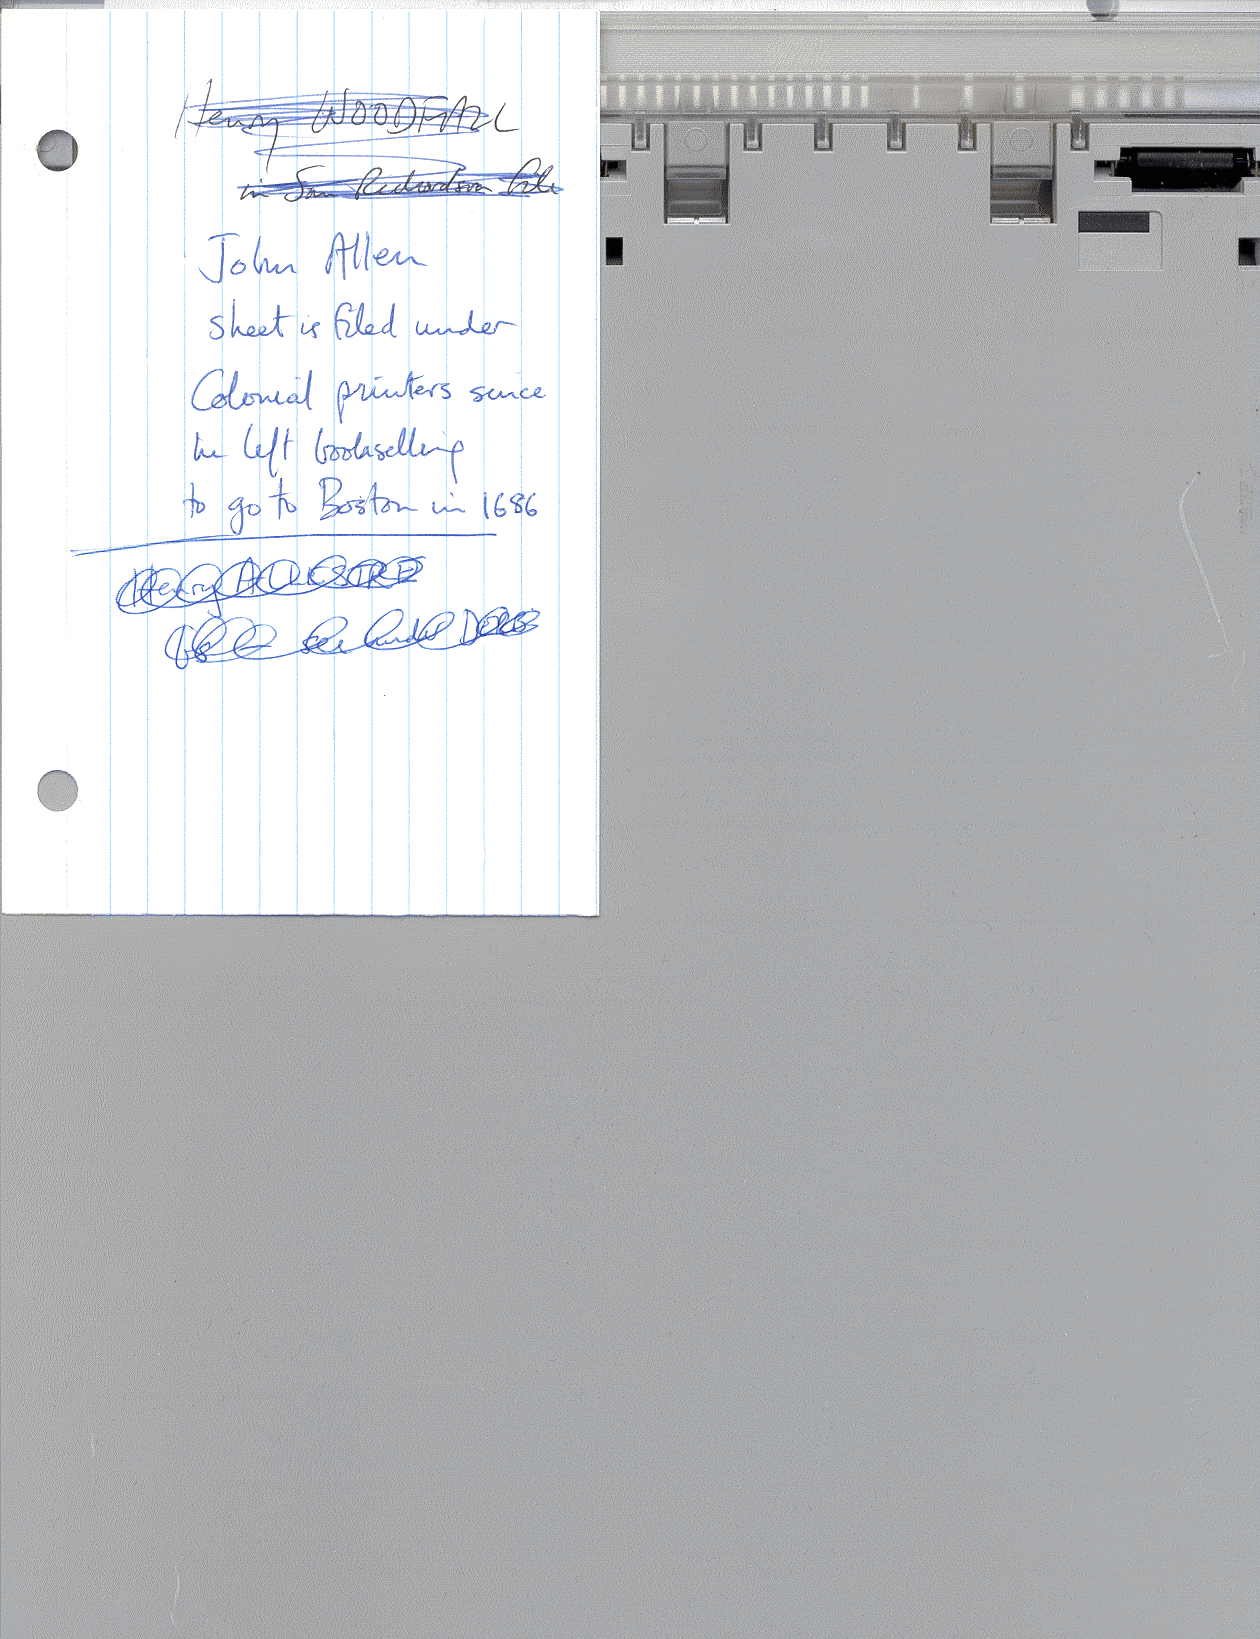 Henry WOODFALL
in Sam Richardson file
John Allen
sheet is filed under
Colonial printers since
he left bookselling
to go to Boston in 1686
Henry